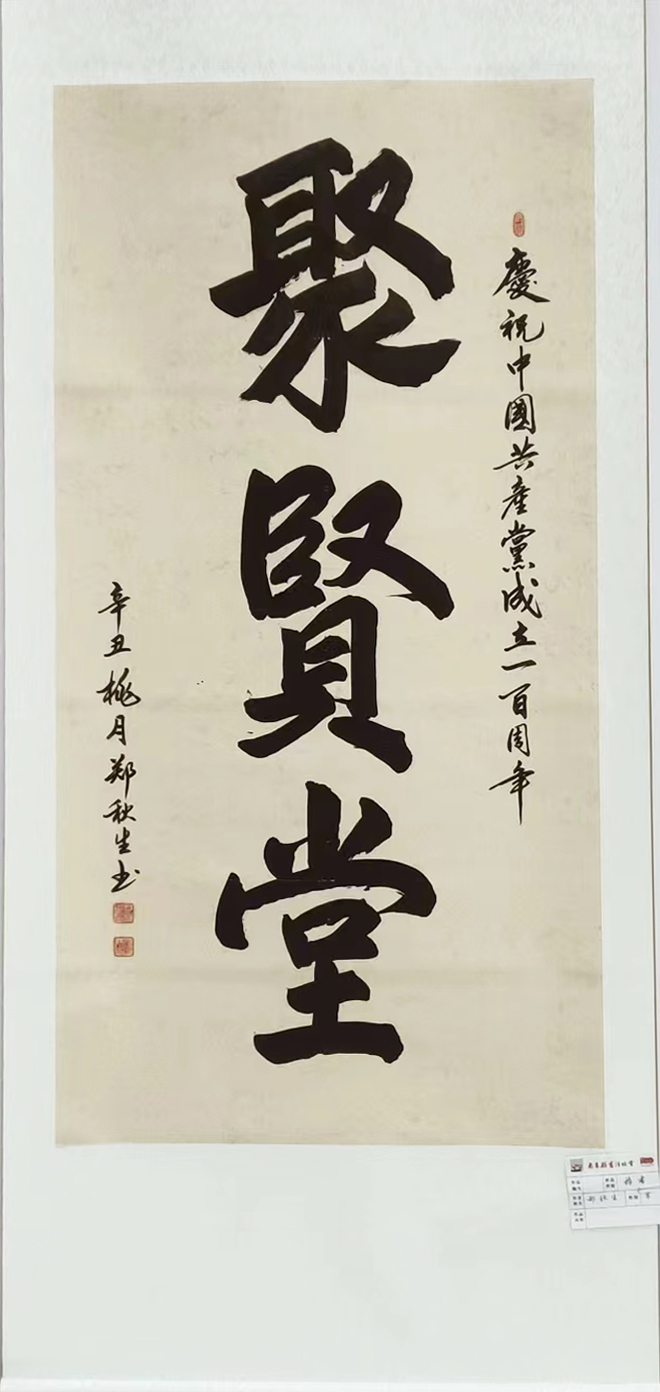 慶祝中國共產黨成立一百周年
聚賢堂
辛丑桃月郑秋生书